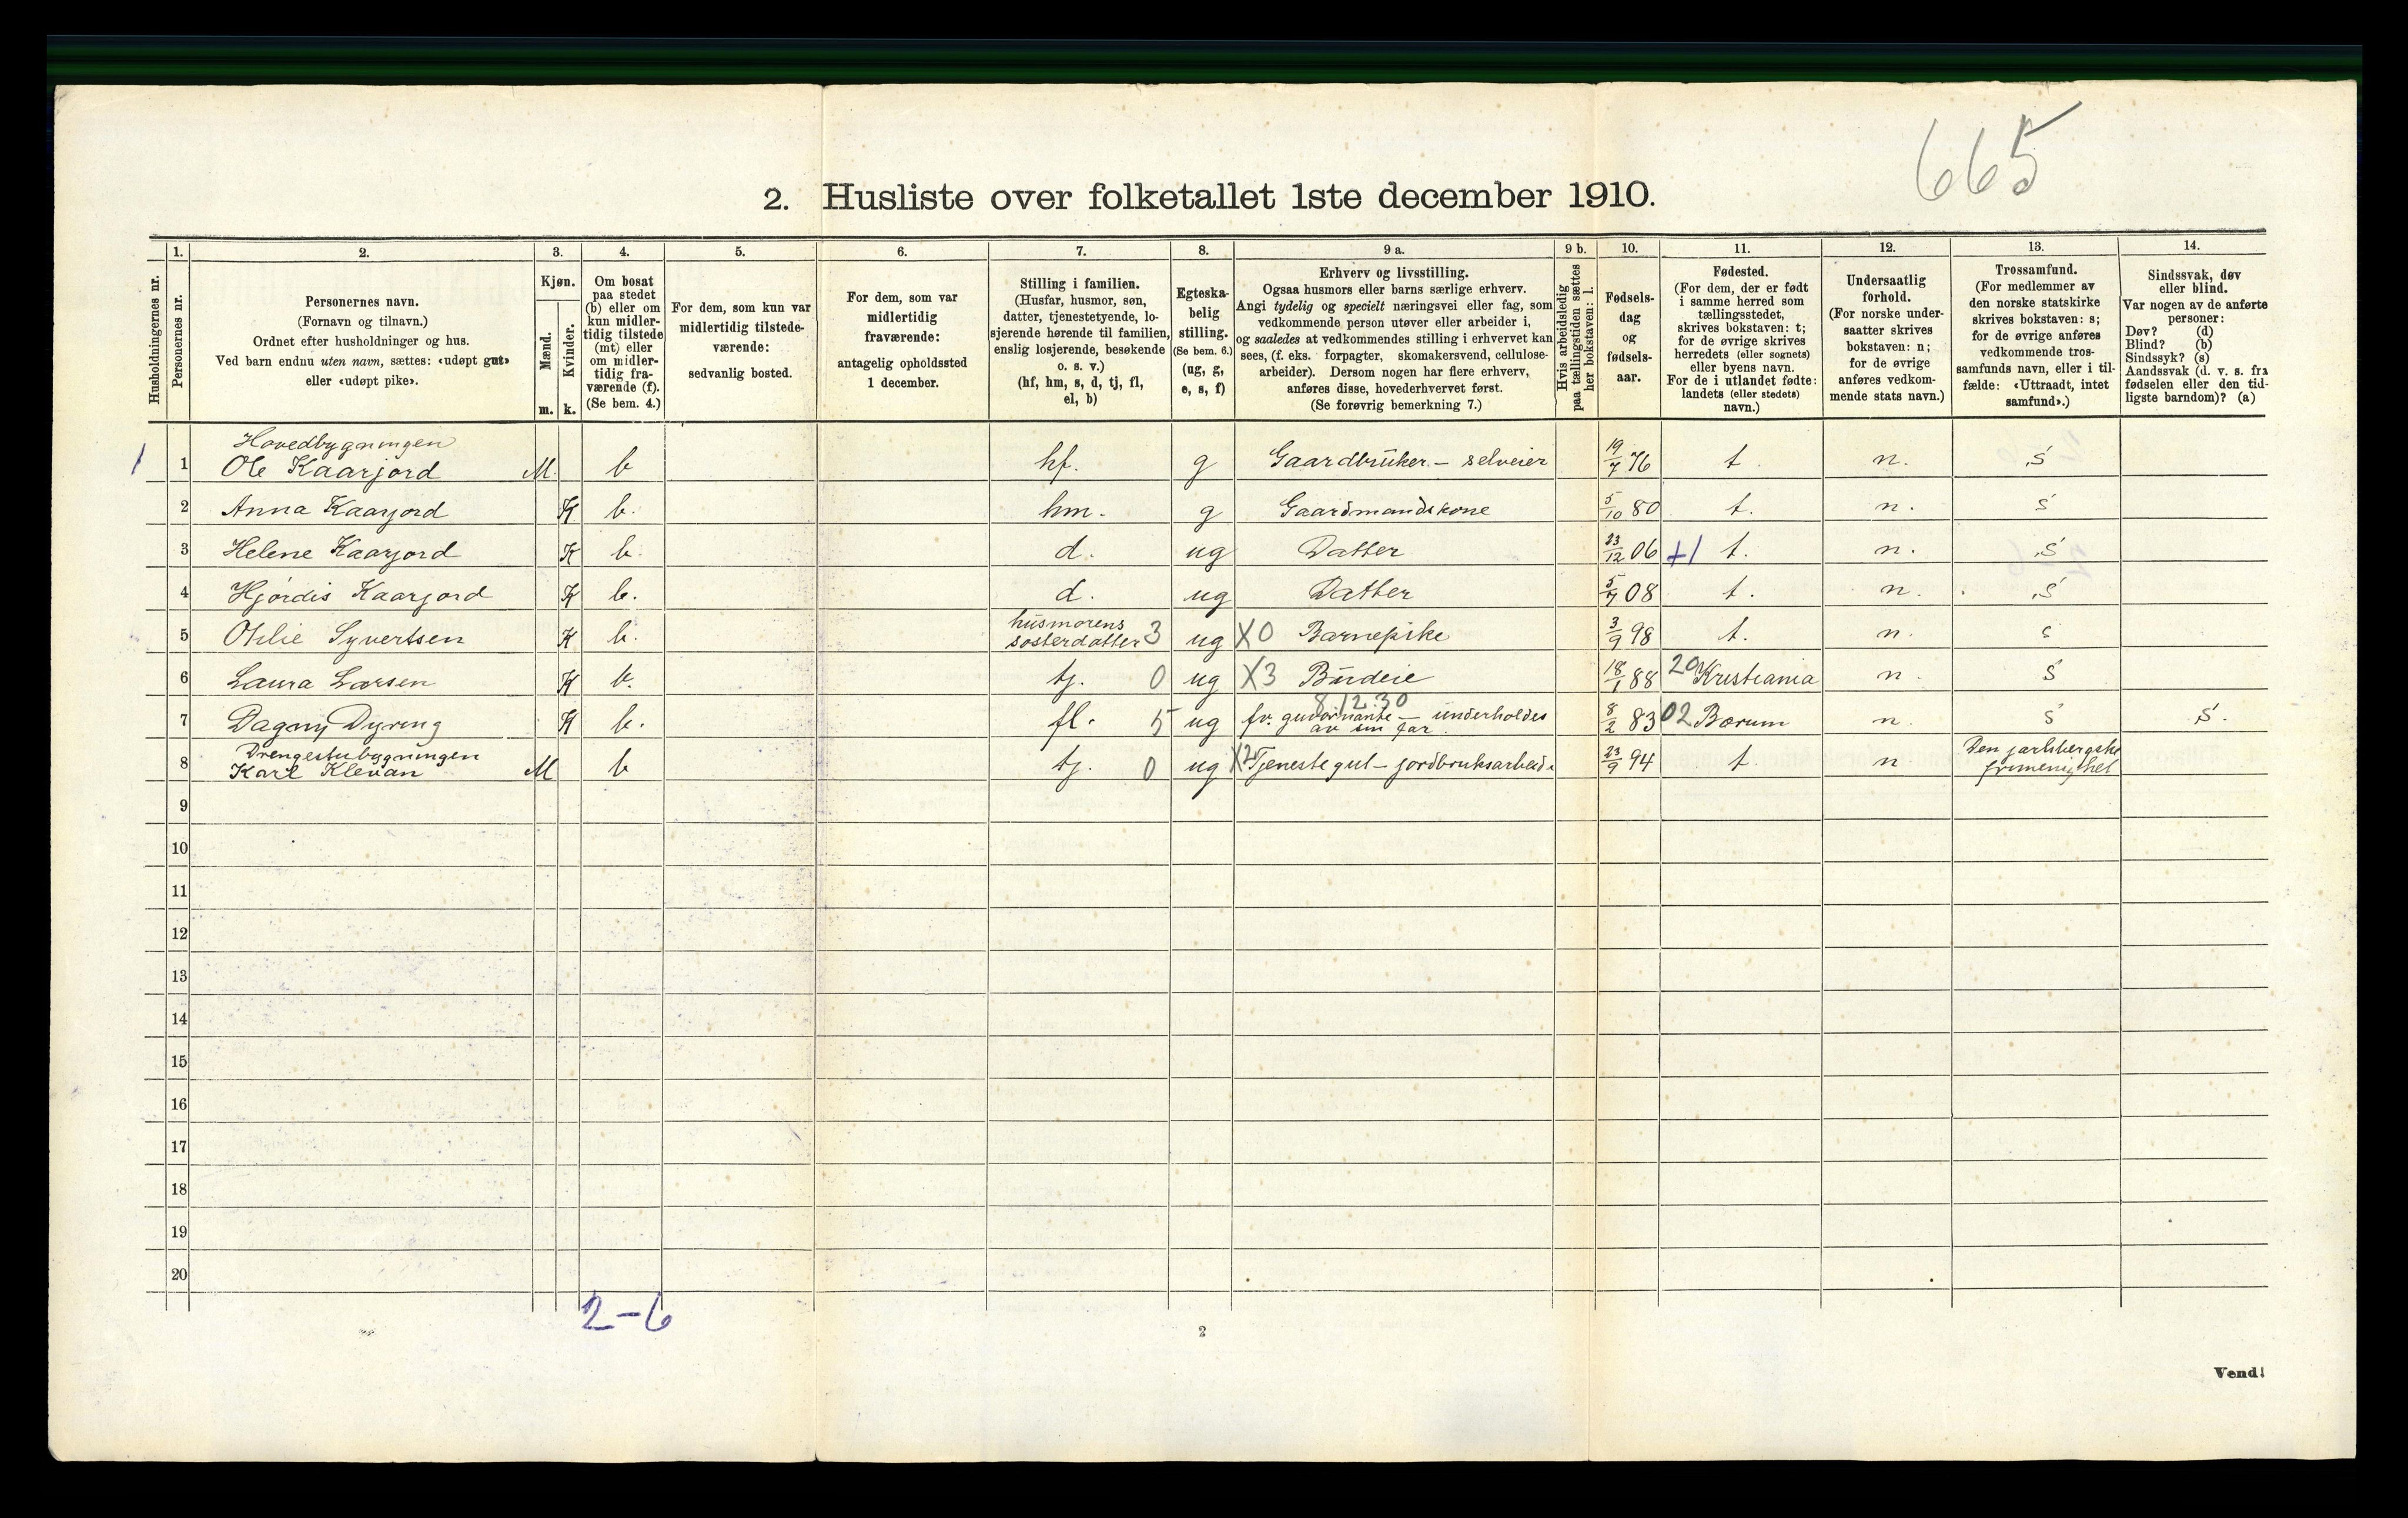 665
2. Husliste over folketallet 1ste december 1910.
Husholdningernes nr.
1.
Personernes nr.
2.
Personernes navn.
(Fornavn og tilnavn.)
Ordnet efter husholdninger og hus.
Ved barn endnu uten navn, sættes: «udøpt gut»
eller «udøpt pike».
3.
Kjøn.
Mænd.
m.
Kvinder.
k.
4.
Om bosat
paa stedet
(b) eller om
kun midler-
tidig tilstede
(mt) eller
om midler-
tidig fra-
værende (f).
(Se bem. 4.)
5.
For dem, som kun var
midlertidig tilstede-
værende:
sedvanlig bosted.
6.
For dem, som var
midlertidig
fraværende:
antagelig opholdssted
1 december.
7.
Stilling i familien.
(Husfar, husmor, søn,
datter, tjenestetyende, lo-
sjerende hørende til familien,
enslig losjerende, besøkende
o. s. v.)
(hf, hm, s, d, tj, fl,
el, b)
8.
Egteska-
belig
stilling.
(Se bem. 6.)
(ug, g,
e, s, f)
9 a.
Erhverv og livsstilling.
Ogsaa husmors eller barns særlige erhverv.
Angi tydelig og specielt næringsvei eller fag, som
vedkommende person utøver eller arbeider i,
og saaledes at vedkommendes stilling i erhvervet kan
sees, (f. eks. forpagter, skomakersvend, cellulose-
arbeider). Dersom nogen har flere erhverv,
anføres disse, hovederhvervet først.
(Se forøvrig bemerkning 7.)
9 b.
Hvis arbeidsledig
paa tællingstiden sættes
her bokstaven: l.
10.
Fødsels-
dag
og
fødsels-
aar.
11.
Fødested.
(For dem, der er født
i samme herred som
tællingsstedet,
skrives bokstaven: t;
for de øvrige skrives
herredets (eller sognets)
eller byens navn.
For de i utlandet fødte:
landets (eller stedets)
navn.)
12.
Undersaatlig
forhold.
(For norske under-
saatter skrives
bokstaven: n;
for de øvrige
anføres vedkom-
mende stats navn.)
13.
Trossamfund.
(For medlemmer av
den norske statskirke
skrives bokstaven: s;
for de øvrige anføres
vedkommende tros-
samfunds navn, eller i til-
fælde: «Uttraadt, intet
samfund».)
14.
Sindssvak, døv
eller blind.
Var nogen av de anførte
personer:
Døv? (d)
Blind? (b)
Sindssyk? (s)
Aandssvak (d. v. s. fra
fødselen eller den tid-
ligste barndom)? (a)
Hovedbygningen
1 1 Ole Kaarjord M. b hf. g Gaardbruker - selveier 19/7 76 t. n. s
2 Anna Kaarjord K b. hm. g Gaardmandskone 5/10 80 t. n. s
3 Helene Kaarjord K b. d. ug Datter 23/12 06 +1 t. n. s
4 Hjördis Kaarjord K b. d. ug Datter 5/7 08 t. n. s
husmorens
5 Otilie Syvertsen K b. sösterdatter 3 ug X0 Barnepike 3/9 98 t. n. s
6 Laura Larsen K b. tj. 0 ug X3 Budeie 18/1 88 20 Kristiania n. s
8.12.30
7 Dagny Dyring K b. fl. 5 ug fv. guvernante - underholdes 8/2 83 02 Bærum n. s s.
av sin far.
Drengestubygningen Den jarlsbergske
8 Karl Klevan M b tj. 0 ug X2 Tjenestegut - jordbruksarbeid. 23/9 94 t n frimenighet
9
10
11
12
13
14
15
16
17
18
19
20
2-6
2
Vend!